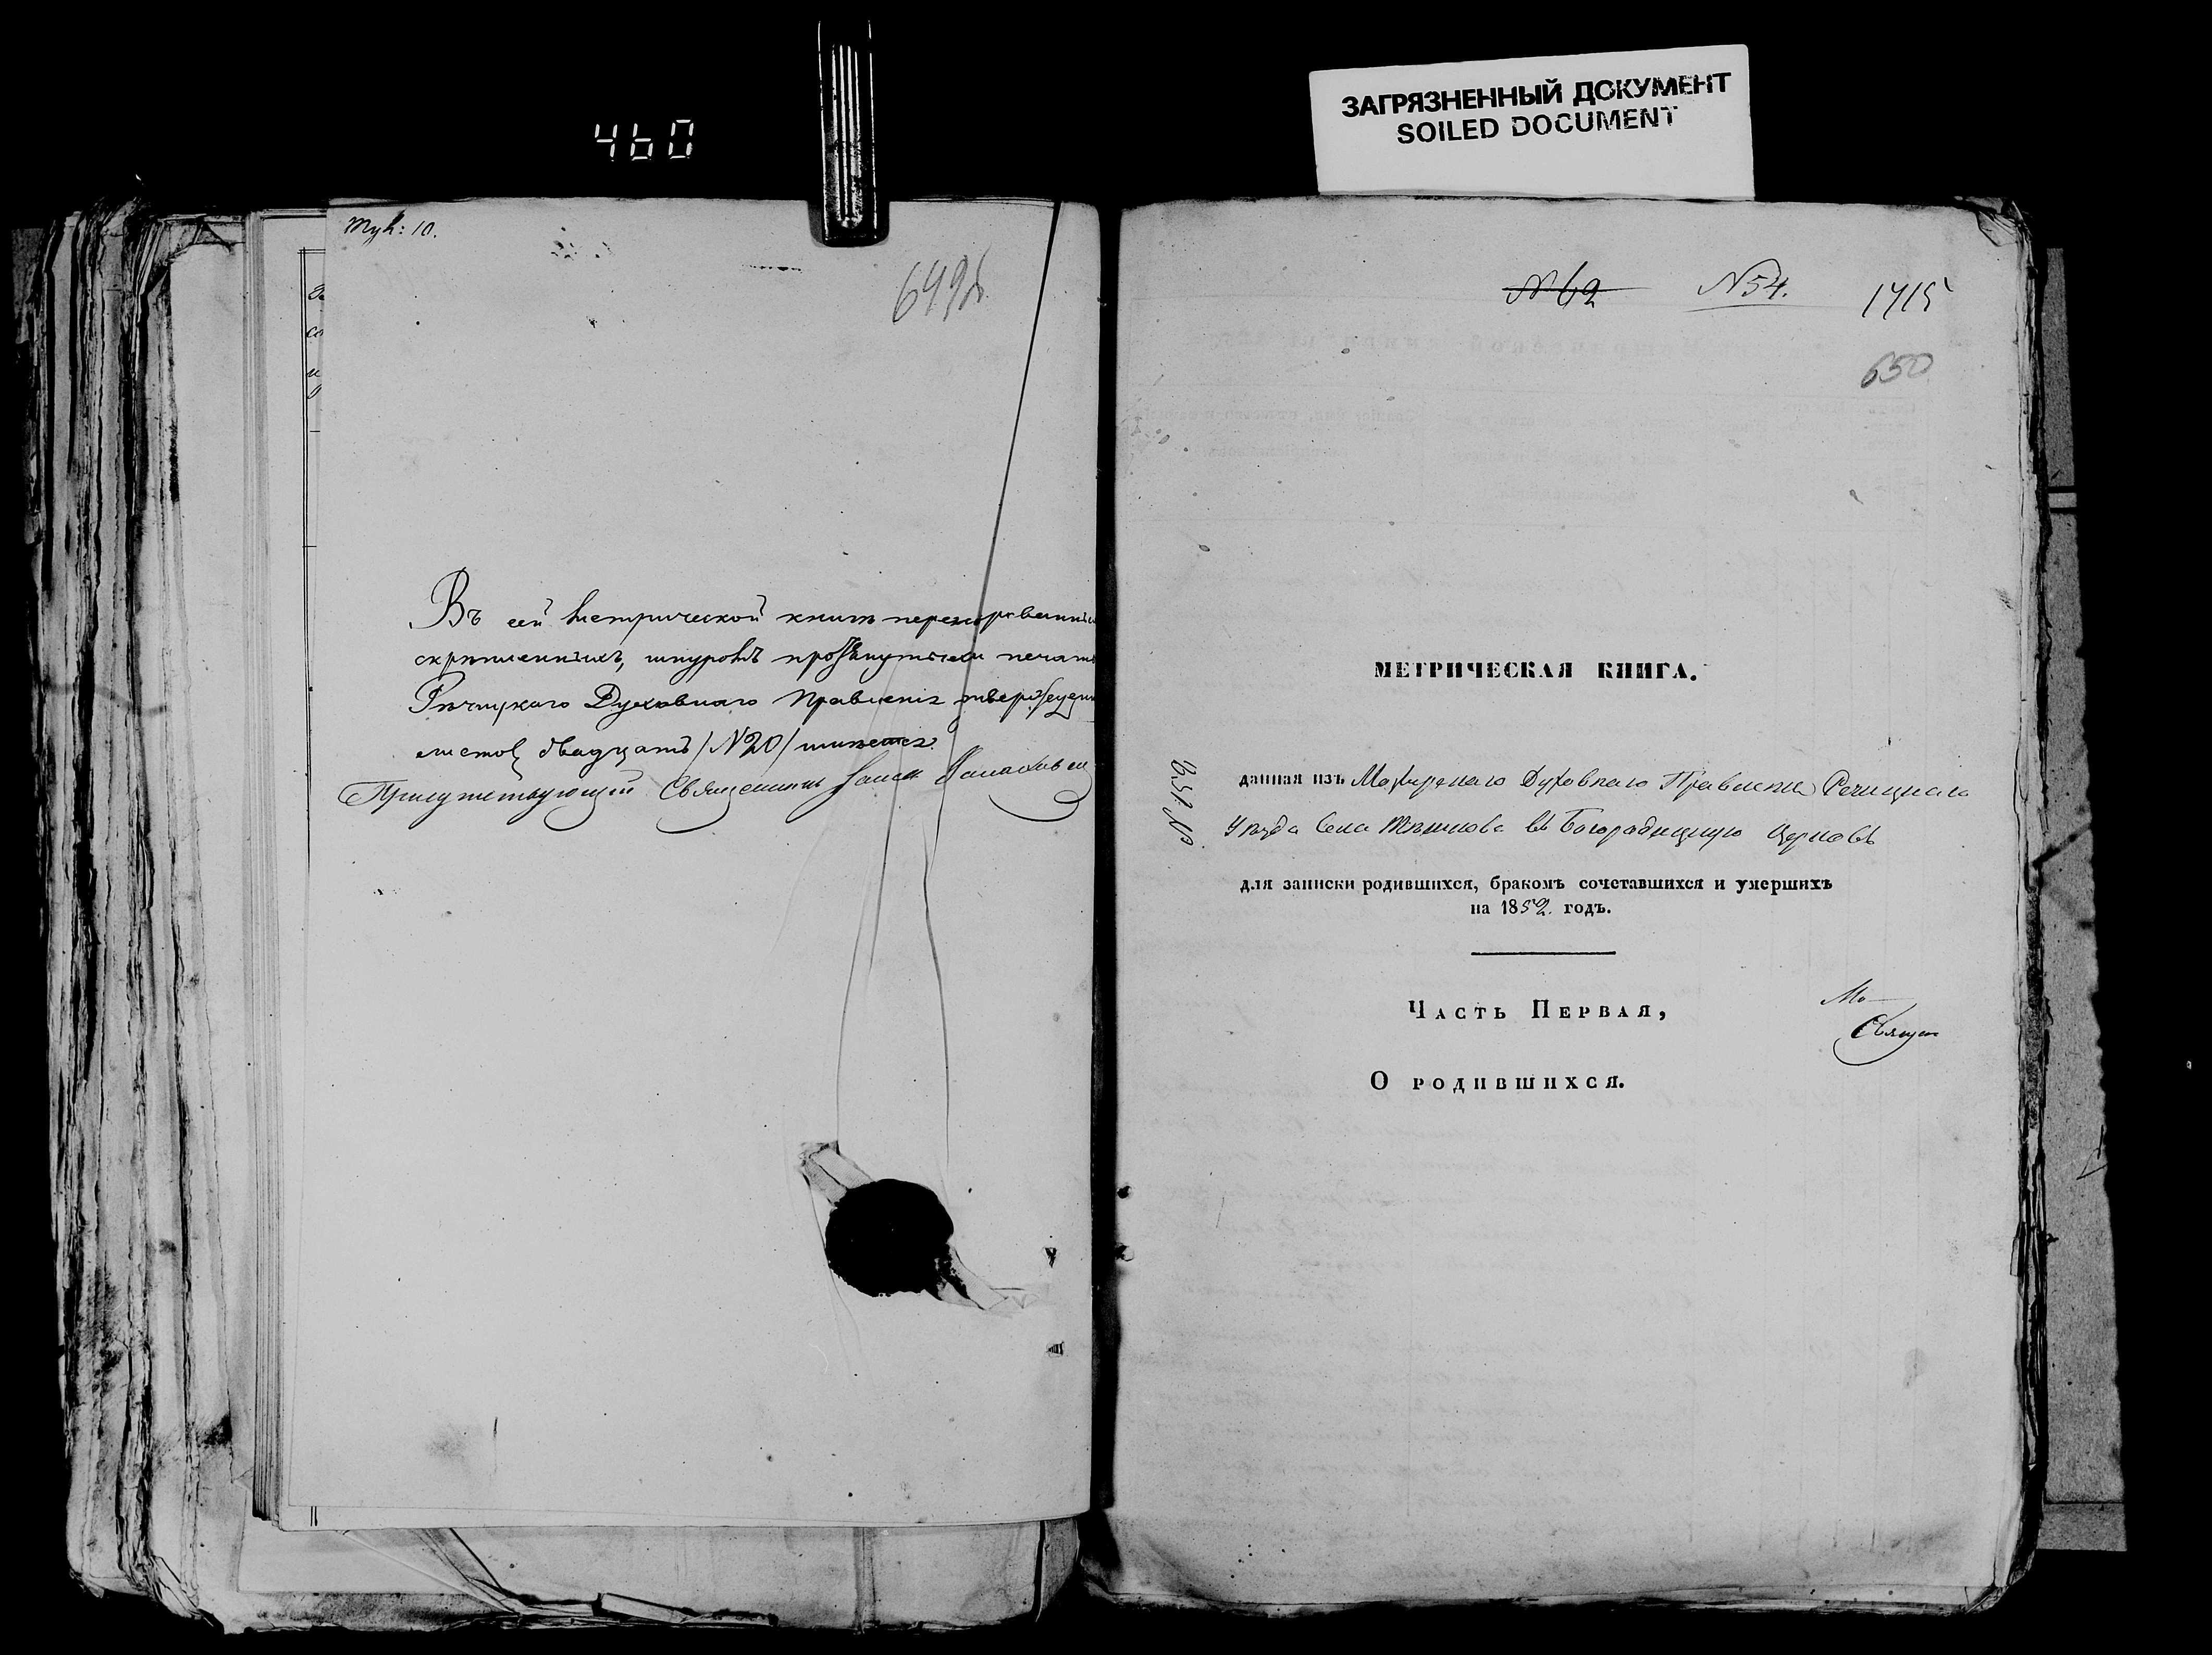 460
ЗАГРЯЗНЕННЫЙ ДОКУМЕНТ
SOILED DOCUMENT
Въ сей метрической книгѣ перенумерованныхъ
скрѣпленныхъ, шнуромъ печат
Рѣчицкаго Духовнаго Правленія
листовъ двадцать /№20/
Присутствующій Священникъ
№ 62 № 54. 1715
650
МЕТРИЧЕСКАЯ КНИГА.
данная изъ Мозырскаго Духовнаго Правленія Речицкаго
Уѣзда Села въ Богородицкую Церковь
для записки родившихся, бракомъ сочетавшихся и умершихъ
на 1852. годъ.
ЧАСТЬ ПЕРВАЯ,
Мо-
Свящ
О РОДИВШИХСЯ.